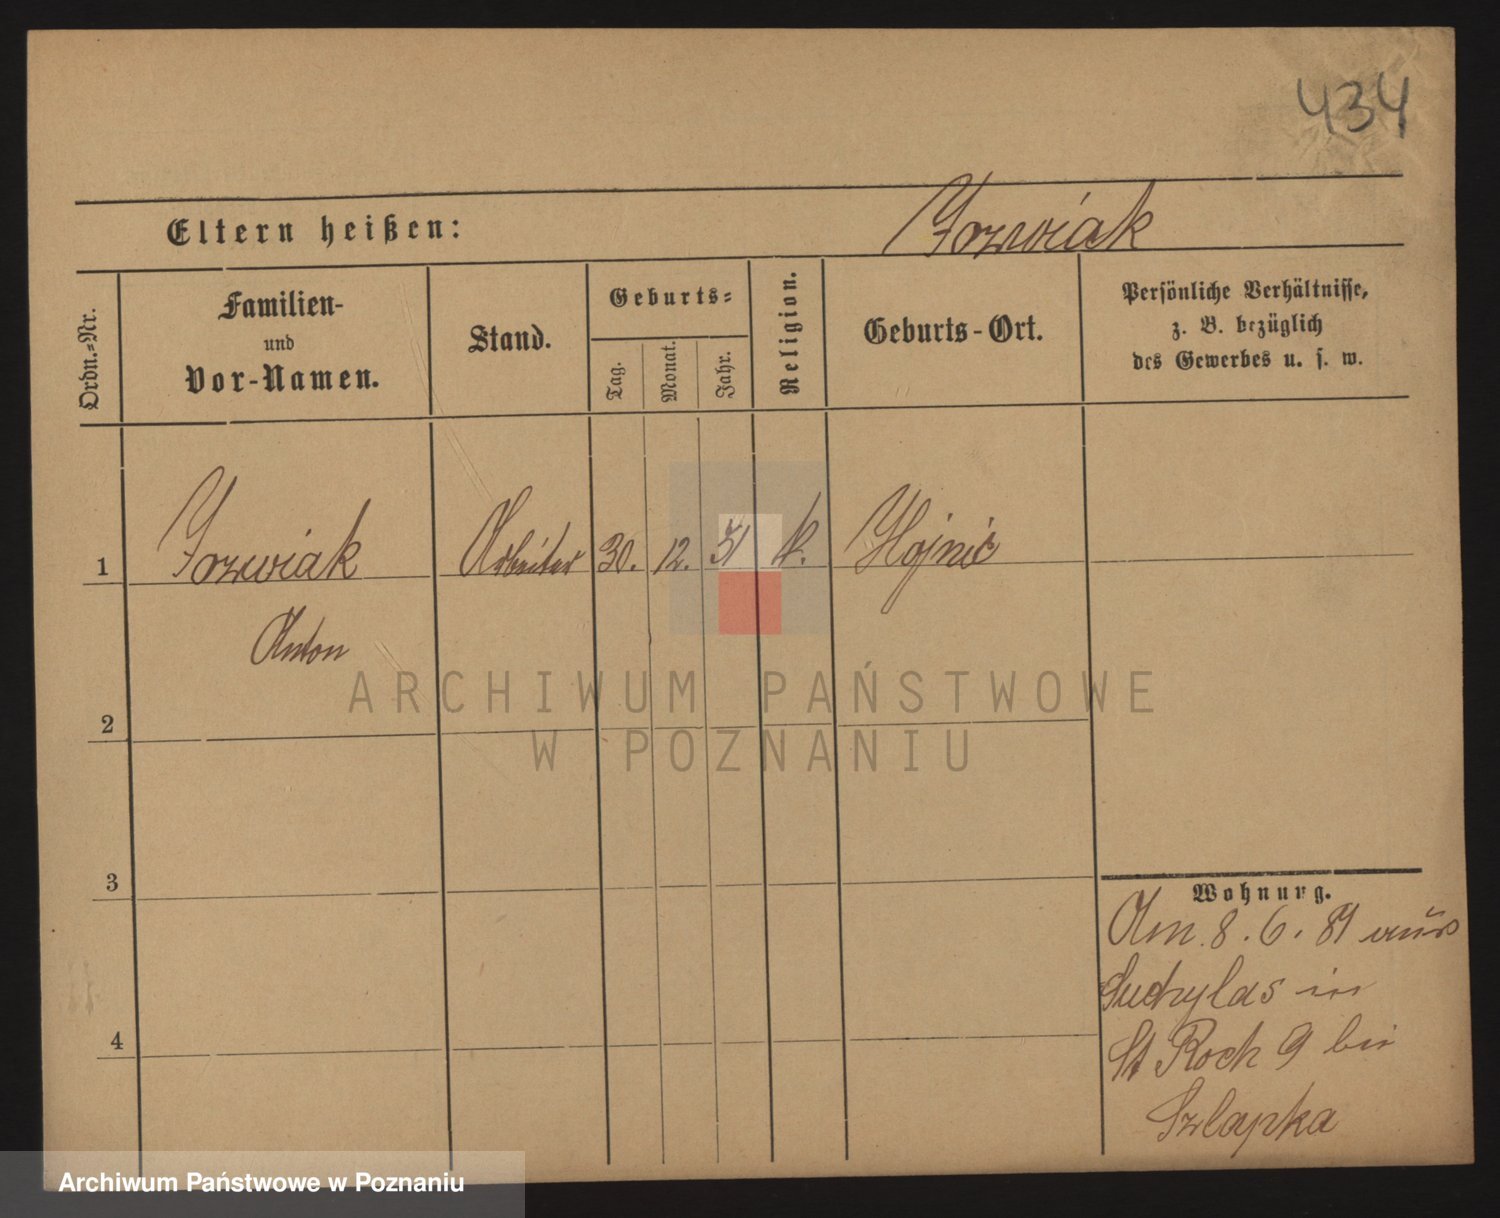 434
Eltern heißen:
Jozwiak
Ordn.-Nr.
Familien-
und
Vor-Namen.
Stand.
Geburts-
Tag.
Monat.
Jahr.
Religion.
Geburts-Ort.
Persönliche Verhältnisse,
z. B. bezüglich
des Gewerbes u. s. w.
1
Jozwiak Arbeiter 30. 12. 51 k.
Anton
ARCHIWUM PAŃSTWOWE
W POZNANIU
2
3
4
Wohnung.
Am 8. 6. 81 aus
Suchylas in
St Roch 9 bei
Szlapka
Archiwum Państwowe w Poznaniu